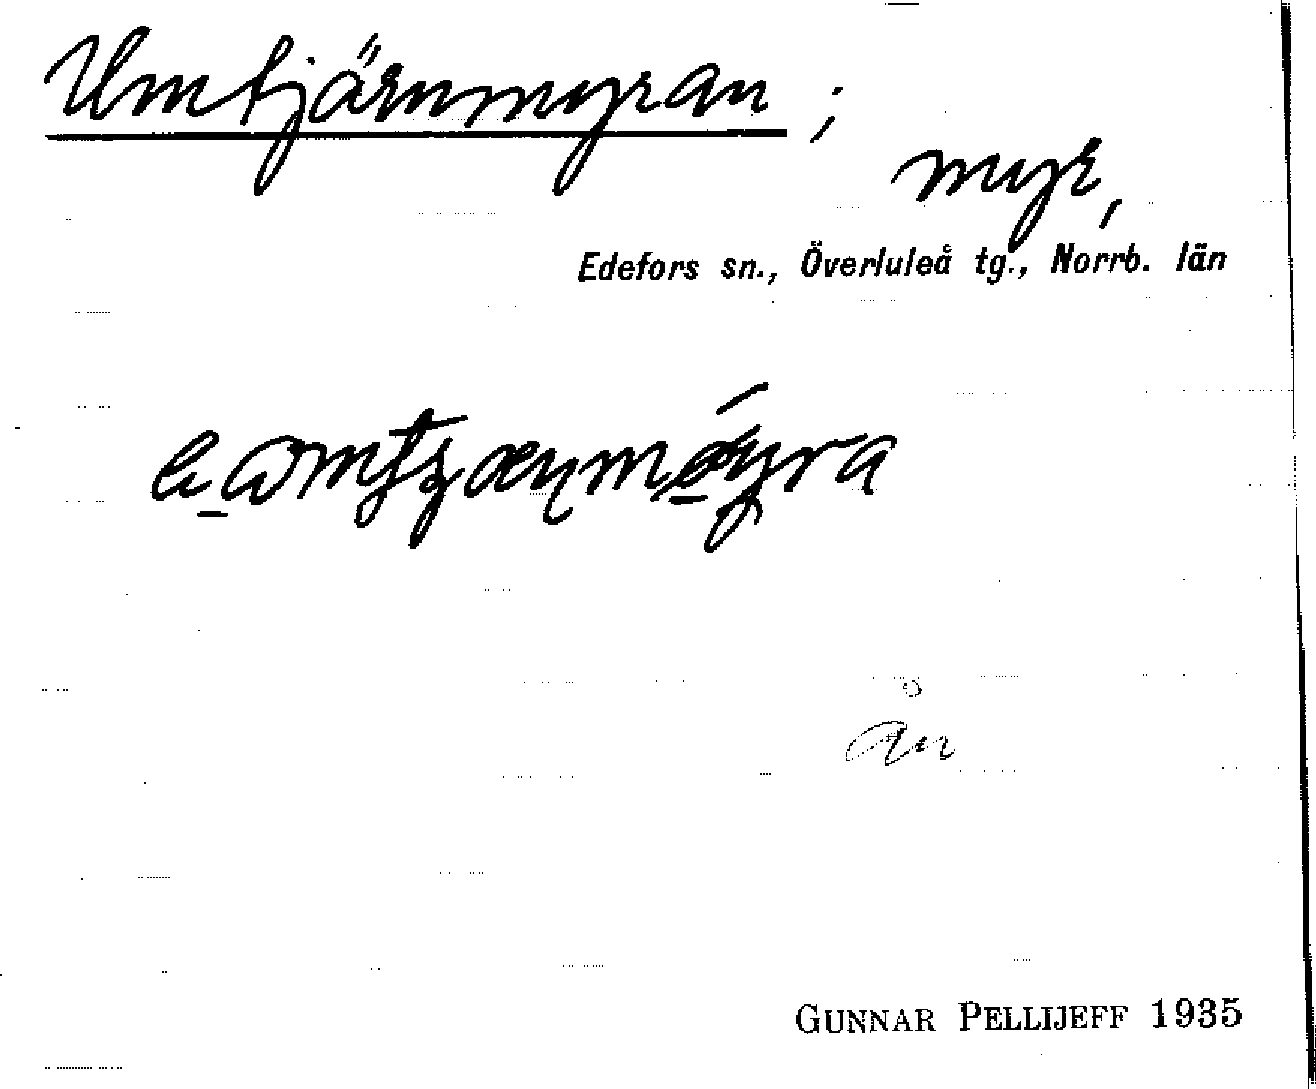 Umtjärnmyran;
myr,
Edefors sn., Överluleå tg., Norrb. län
GUNNAR PELLIJEFF 1935